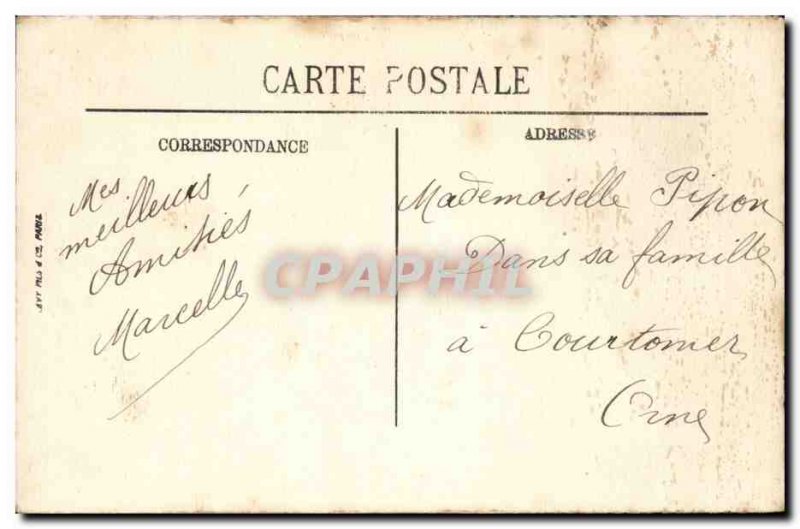 CARTE POSTALE
CORRESPONDANCE
ADRESSE
Mes
meilleurs
Amitiés
Marcelle
Mademoiselle Pipon
Dans sa famille
à Courtomer
Orne
CPAPHIL